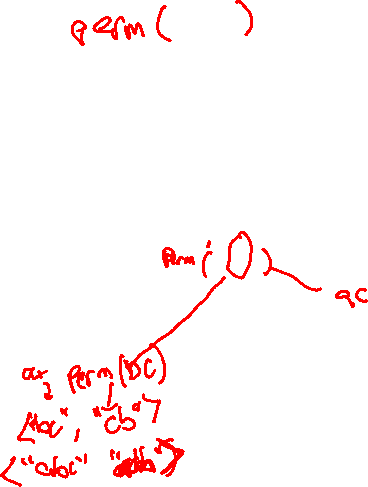 perm( )
perm( )
ac
a, perm(bc)
["bc", "cb"]
<"abc"